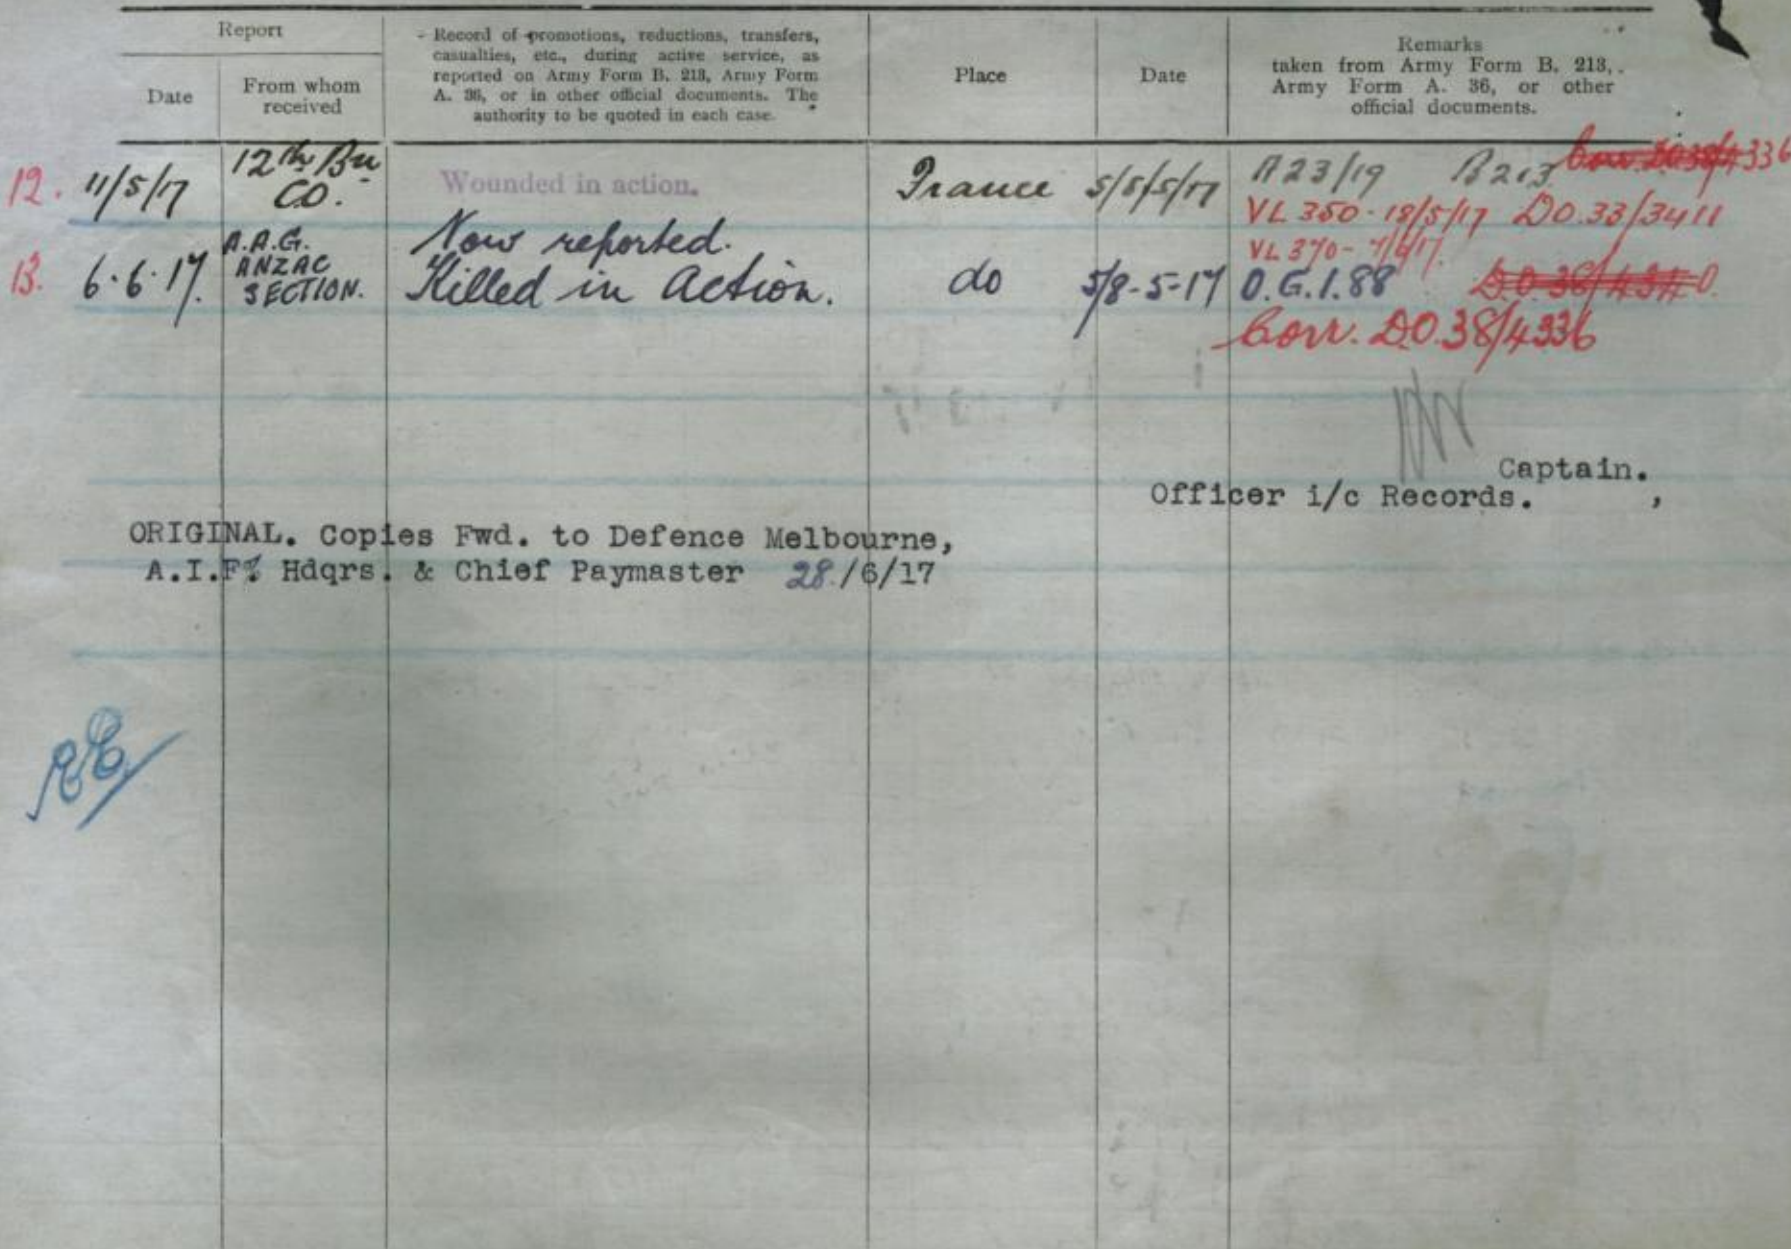 Report
Date
From whom
received
Record of promotions, reductions, transfers,
casualties, etc., during active service, as
reported on Army Form B. 213, Army Form
A. 36, or in other official documents. The
authority to be quoted in each case.
Place
Date
Remarks
taken from Army Form B. 213,
Army Form A. 36, or other
official documents.
12. 11/5/17 12th Bn CO. Wounded in action. France 5/8/5/17 A23/19 B213 Corr. D.O.38/4336
VL 350 - 18/5/17 D.O.33/3411
VL 370 - 7/6/17.
13. 6.6.17. A.A.G. ANZAC SECTION. Now reported.
Killed in Action. do 5/8-5-17 O.G.1.88
Corr. D.O.38/4336
Captain.
Officer i/c Records. ,
ORIGINAL. Copies Fwd. to Defence Melbourne,
A.I.F. Hdqrs. & Chief Paymaster 28./6/17